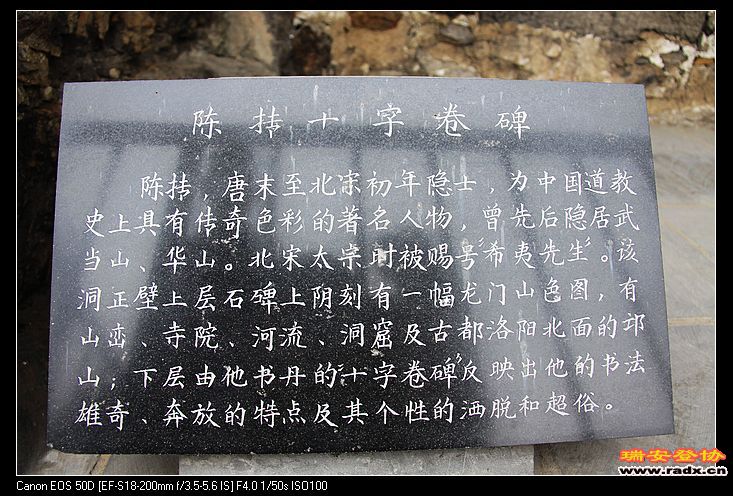 陈抟十字卷碑
陈抟，唐末至北宋初年隐士，为中国道教
史上具有传奇色彩的著名人物，曾先后隐居武
当山、华山。北宋太宗时被赐号“希夷先生”。该
洞正壁上层石碑上阴刻有一幅龙门山色图，有
山峦、寺院、河流、洞窟及古都洛阳北面的邙
山；下层由他书丹的“十字卷碑”反映出他的书法
雄奇、奔放的特点及其个性的洒脱和超俗。
瑞安登协
www.radx.cn
Canon EOS 50D [EF-S18-200mm f/3.5-5.6 IS] F4.0 1/50s ISO100